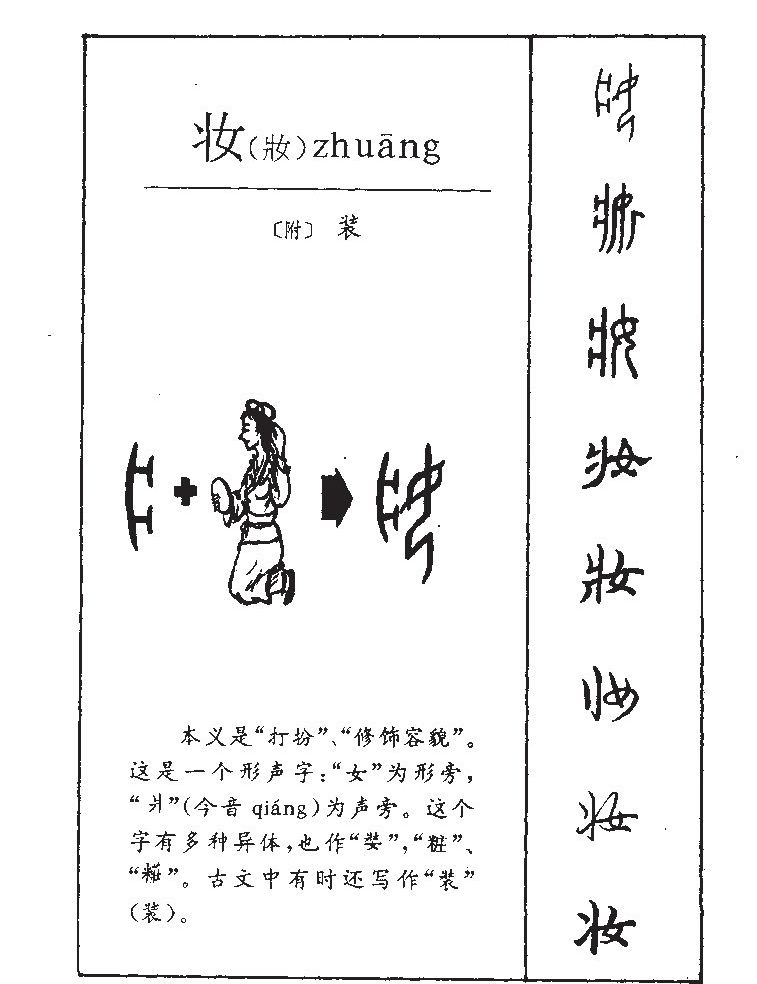 妆(妝)zhuāng
〔附〕 装
本义是“打扮”、“修饰容貌”。
这是一个形声字:“女”为形旁,
“爿”(今音 qiáng)为声旁。这个
字有多种异体,也作“娤”,“粧”、
“糚”。古文中有时还写作“装”
(装)。
妝
妝
妆
妆